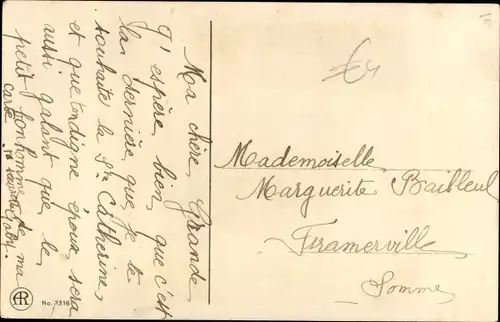 Ma chère Grande,
J'espère bien que c'est
la dernière que je te
souhaite la Ste Catherine,
et que ton digne époux sera
aussi galant que le
petit bonhomme de ma
carte
€4
Mademoiselle
Marguerite Bailleul
Framerville
Somme
AR
No. 1316